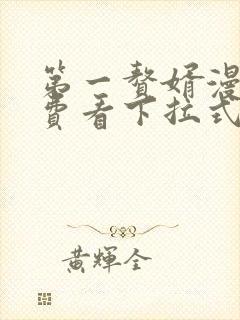 第一赘婿漫
费看下拉式
黄辉全